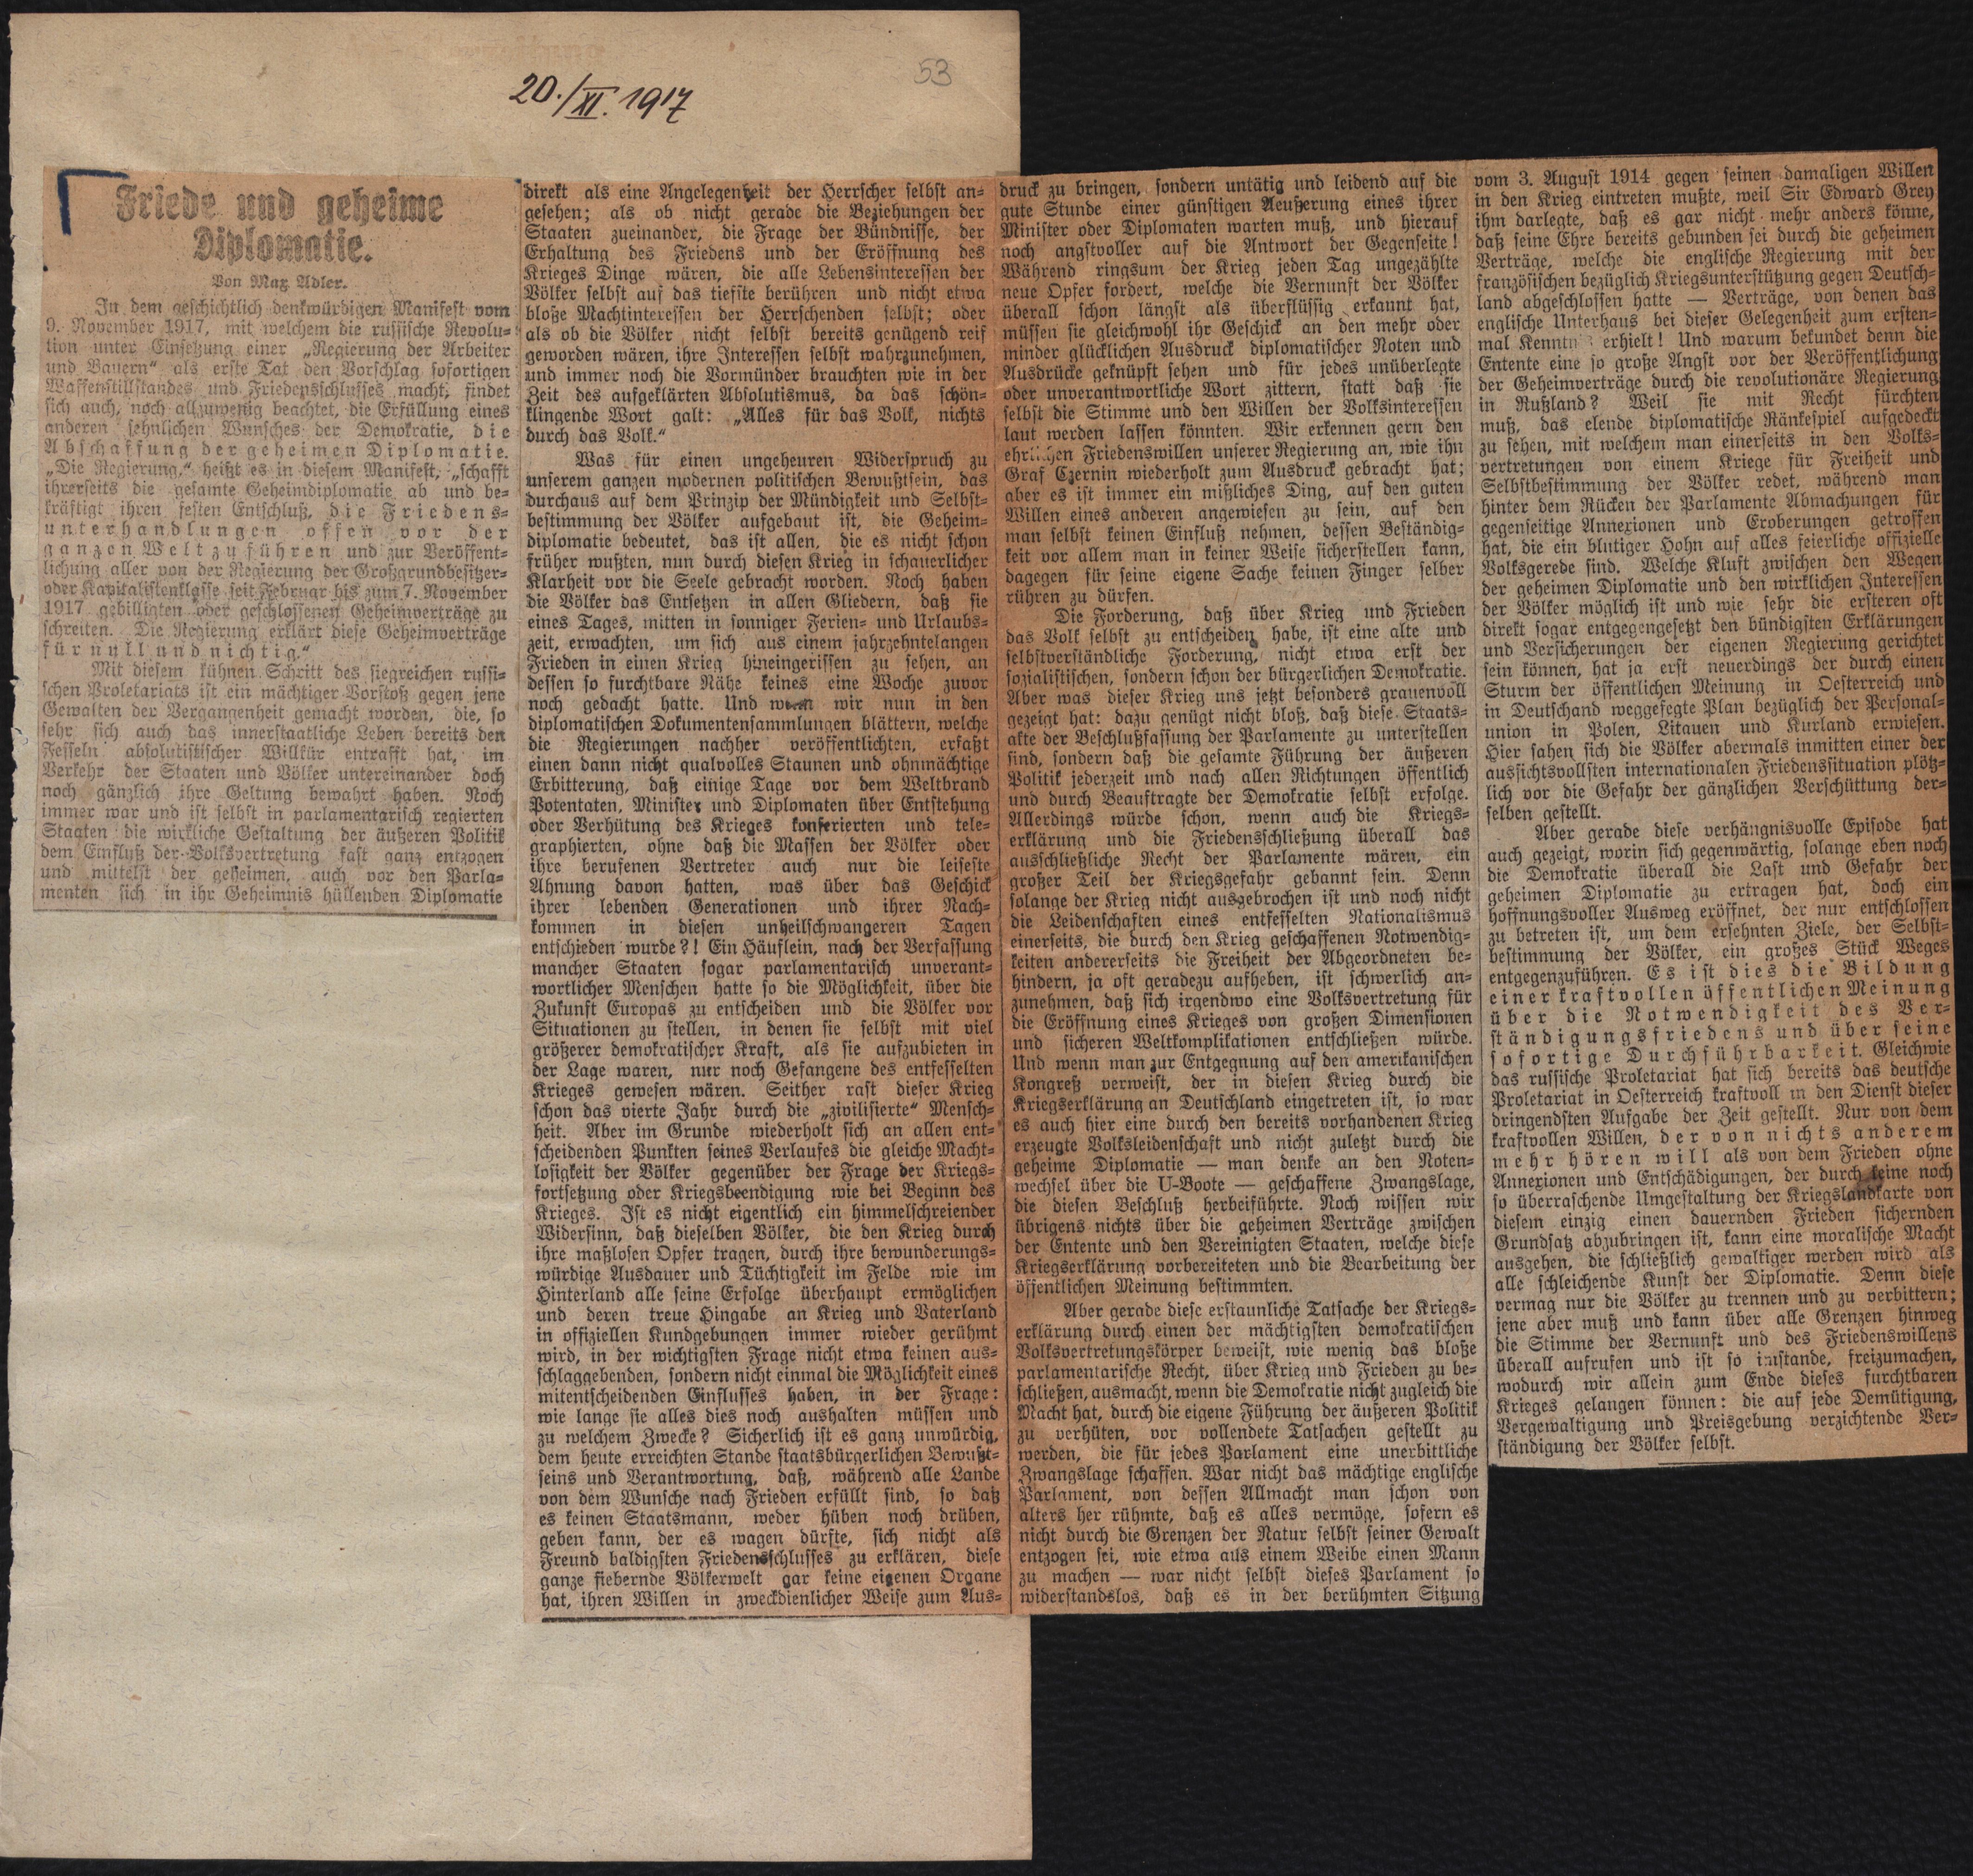 20./XI. 1917
53
Friede und geheime
Diplomatie.
Von Max Adler.
In dem geschichtlich denkwürdigen Manifest vom
9. November 1917, mit welchem die russische Revolu-
tion unter Einsetzung einer „Regierung der Arbeiter
und Bauern“ als erste Tat den Vorschlag sofortigen
Waffenstillstandes und Friedensschlusses macht, findet
sich auch, noch allzuwenig beachtet, die Erfüllung eines
anderen sehnlichen Wunsches der Demokratie, die
Abschaffung der geheimen Diplomatie.
„Die Regierung,“ heißt es in diesem Manifest, „schafft
ihrerseits die gesamte Geheimdiplomatie ab und be-
kräftigt ihren festen Entschluß, die Friedens-
unterhandlungen offen vor der
ganzen Welt zu führen und zur Veröffent-
lichung aller von der Regierung der Großgrundbesitzer-
oder Kapitalistenklasse seit Februar bis zum 7. November
1917 gebilligten oder geschlossenen Geheimverträge zu
schreiten. Die Regierung erklärt diese Geheimverträge
für null und nichtig.“
Mit diesem kühnen Schritt des siegreichen russi-
schen Proletariats ist ein mächtiger Vorstoß gegen jene
Gewalten der Vergangenheit gemacht worden, die, so
sehr sich auch das innerstaatliche Leben bereits den
Fesseln absolutistischer Willkür entrafft hat, im
Verkehr der Staaten und Völker untereinander doch
noch gänzlich ihre Geltung bewahrt haben. Noch
immer war und ist selbst in parlamentarisch regierten
Staaten die wirkliche Gestaltung der äußeren Politik
dem Einfluß der Volksvertretung fast ganz entzogen
und mittelst der geheimen, auch vor den Parla-
menten sich in ihr Geheimnis hüllenden Diplomatie
direkt als eine Angelegenheit der Herrscher selbst an-
gesehen; als ob nicht gerade die Beziehungen der
Staaten zueinander, die Frage der Bündnisse, der
Erhaltung des Friedens und der Eröffnung des
Krieges Dinge wären, die alle Lebensinteressen der
Völker selbst auf das tiefste berühren und nicht etwa
bloße Machtinteressen der Herrschenden selbst; oder
als ob die Völker nicht selbst bereits genügend reif
geworden wären, ihre Interessen selbst wahrzunehmen,
und immer noch die Vormünder brauchten wie in der
Zeit des aufgeklärten Absolutismus, da das schön-
klingende Wort galt: „Alles für das Volk, nichts
durch das Volk.“
Was für einen ungeheuren Widerspruch zu
unserem ganzen modernen politischen Bewußtsein, das
durchaus auf dem Prinzip der Mündigkeit und Selbst-
bestimmung der Völker aufgebaut ist, die Geheim-
diplomatie bedeutet, das ist allen, die es nicht schon
früher wußten, nun durch diesen Krieg in schauerlicher
Klarheit vor die Seele gebracht worden. Noch haben
die Völker das Entsetzen in allen Gliedern, daß sie
eines Tages, mitten in sonniger Ferien- und Urlaubs-
zeit, erwachten, um sich aus einem jahrzehntelangen
Frieden in einen Krieg hineingerissen zu sehen, an
dessen so furchtbare Nähe keines eine Woche zuvor
noch gedacht hatte. Und wenn wir nun in den
diplomatischen Dokumentensammlungen blättern, welche
die Regierungen nachher veröffentlichten, erfaßt
einen dann nicht qualvolles Staunen und ohnmächtige
Erbitterung, daß einige Tage vor dem Weltbrand
Potentaten, Minister und Diplomaten über Entstehung
oder Verhütung des Krieges konferierten und tele-
graphierten, ohne daß die Massen der Völker oder
ihre berufenen Vertreter auch nur die leiseste
Ahnung davon hatten, was über das Geschick
ihrer lebenden Generationen und ihrer Nach-
kommen in diesen unheilschwangeren Tagen
entschieden wurde?! Ein Häuflein, nach der Verfassung
mancher Staaten sogar parlamentarisch unverant-
wortlicher Menschen hatte so die Möglichkeit, über die
Zukunft Europas zu entscheiden und die Völker vor
Situationen zu stellen, in denen sie selbst mit viel
größerer demokratischer Kraft, als sie aufzubieten in
der Lage waren, nur noch Gefangene des entfesselten
Krieges gewesen wären. Seither rast dieser Krieg
schon das vierte Jahr durch die „zivilisierte“ Mensch-
heit. Aber im Grunde wiederholt sich an allen ent-
scheidenden Punkten seines Verlaufes die gleiche Macht-
losigkeit der Völker gegenüber der Frage der Kriegs-
fortsetzung oder Kriegsbeendigung wie bei Beginn des
Krieges. Ist es nicht eigentlich ein himmelschreiender
Widersinn, daß dieselben Völker, die den Krieg durch
ihre maßlosen Opfer tragen, durch ihre bewunderungs-
würdige Ausdauer und Tüchtigkeit im Felde wie im
Hinterland alle seine Erfolge überhaupt ermöglichen
und deren treue Hingabe an Krieg und Vaterland
in offiziellen Kundgebungen immer wieder gerühmt
wird, in der wichtigsten Frage nicht etwa keinen aus-
schlaggebenden, sondern nicht einmal die Möglichkeit eines
mitentscheidenden Einflusses haben, in der Frage:
wie lange sie alles dies noch aushalten müssen und
zu welchem Zwecke? Sicherlich ist es ganz unwürdig,
dem heute erreichten Stande staatsbürgerlichen Bewußt-
seins und Verantwortung, daß, während alle Lande
von dem Wunsche nach Frieden erfüllt sind, so daß
es keinen Staatsmann, weder hüben noch drüben,
geben kann, der es wagen dürfte, sich nicht als
Freund baldigsten Friedensschlusses zu erklären, diese
ganze fiebernde Völkerwelt gar keine eigenen Organe
hat, ihren Willen in zweckdienlicher Weise zum Aus-
druck zu bringen, sondern untätig und leidend auf die
gute Stunde einer günstigen Aeußerung eines ihrer
Minister oder Diplomaten warten muß, und hierauf
noch angstvoller auf die Antwort der Gegenseite!
Während ringsum der Krieg jeden Tag ungezählte
neue Opfer fordert, welche die Vernunft der Völker
überall schon längst als überflüssig erkannt hat,
müssen sie gleichwohl ihr Geschick an den mehr oder
minder glücklichen Ausdruck diplomatischer Noten und
Ausdrücke geknüpft sehen und für jedes unüberlegte
oder unverantwortliche Wort zittern, statt daß sie
selbst die Stimme und den Willen der Volksinteressen
laut werden lassen könnten. Wir erkennen gern den
ehrlichen Friedenswillen unserer Regierung an, wie ihn
Graf Czernin wiederholt zum Ausdruck gebracht hat;
aber es ist immer ein mißliches Ding, auf den guten
Willen eines anderen angewiesen zu sein, auf den
man selbst keinen Einfluß nehmen, dessen Beständig-
keit vor allem man in keiner Weise sicherstellen kann,
dagegen für seine eigene Sache keinen Finger selber
rühren zu dürfen.
Die Forderung, daß über Krieg und Frieden
das Volk selbst zu entscheiden habe, ist eine alte und
selbstverständliche Forderung, nicht etwa erst der
sozialistischen, sondern schon der bürgerlichen Demokratie.
Aber was dieser Krieg uns jetzt besonders grauenvoll
gezeigt hat: dazu genügt nicht bloß, daß diese Staats-
akte der Beschlußfassung der Parlamente zu unterstellen
sind, sondern daß die gesamte Führung der äußeren
Politik jederzeit und nach allen Richtungen öffentlich
und durch Beauftragte der Demokratie selbst erfolge.
Allerdings würde schon, wenn auch die Kriegs-
erklärung und die Friedensschließung überall das
ausschließliche Recht der Parlamente wären, ein
großer Teil der Kriegsgefahr gebannt sein. Denn
solange der Krieg nicht ausgebrochen ist und noch nicht
die Leidenschaften eines entfesselten Nationalismus
einerseits, die durch den Krieg geschaffenen Notwendig-
keiten andererseits die Freiheit der Abgeordneten be-
hindern, ja oft geradezu aufheben, ist schwerlich an-
zunehmen, daß sich irgendwo eine Volksvertretung für
die Eröffnung eines Krieges von großen Dimensionen
und sicheren Weltkomplikationen entschließen würde.
Und wenn man zur Entgegnung auf den amerikanischen
Kongreß verweist, der in diesen Krieg durch die
Kriegserklärung an Deutschland eingetreten ist, so war
es auch hier eine durch den bereits vorhandenen Krieg
erzeugte Volksleidenschaft und nicht zuletzt durch die
geheime Diplomatie — man denke an den Noten-
wechsel über die U-Boote — geschaffene Zwangslage,
die diesen Beschluß herbeiführte. Noch wissen wir
übrigens nichts über die geheimen Verträge zwischen
der Entente und den Vereinigten Staaten, welche diese
Kriegserklärung vorbereiteten und die Bearbeitung der
öffentlichen Meinung bestimmten.
Aber gerade diese erstaunliche Tatsache der Kriegs-
erklärung durch einen der mächtigsten demokratischen
Volksvertretungskörper beweist, wie wenig das bloße
parlamentarische Recht, über Krieg und Frieden zu be-
schließen, ausmacht, wenn die Demokratie nicht zugleich die
Macht hat, durch die eigene Führung der äußeren Politik
zu verhüten, vor vollendete Tatsachen gestellt zu
werden, die für jedes Parlament eine unerbittliche
Zwangslage schaffen. War nicht das mächtige englische
Parlament, von dessen Allmacht man schon von
alters her rühmte, daß es alles vermöge, sofern es
nicht durch die Grenzen der Natur selbst seiner Gewalt
entzogen sei, wie etwa aus einem Weibe einen Mann
zu machen — war nicht selbst dieses Parlament so
widerstandslos, daß es in der berühmten Sitzung
vom 3. August 1914 gegen seinen damaligen Willen
in den Krieg eintreten mußte, weil Sir Edward Grey
ihm darlegte, daß es gar nicht mehr anders könne,
daß seine Ehre bereits gebunden sei durch die geheimen
Verträge, welche die englische Regierung mit der
französischen bezüglich Kriegsunterstützung gegen Deutsch-
land abgeschlossen hatte — Verträge, von denen das
englische Unterhaus bei dieser Gelegenheit zum ersten-
mal Kenntnis erhielt! Und warum bekundet denn die
Entente eine so große Angst vor der Veröffentlichung
der Geheimverträge durch die revolutionäre Regierung
in Rußland? Weil sie mit Recht fürchten
muß, das elende diplomatische Ränkespiel aufgedeckt
zu sehen, mit welchem man einerseits in den Volks-
vertretungen von einem Kriege für Freiheit und
Selbstbestimmung der Völker redet, während man
hinter dem Rücken der Parlamente Abmachungen für
gegenseitige Annexionen und Eroberungen getroffen
hat, die ein blutiger Hohn auf alles feierliche offizielle
Volksgerede sind. Welche Kluft zwischen den Wegen
der geheimen Diplomatie und den wirklichen Interessen
der Völker möglich ist und wie sehr die ersteren oft
direkt sogar entgegengesetzt den bündigsten Erklärungen
und Versicherungen der eigenen Regierung gerichtet
sein können, hat ja erst neuerdings der durch einen
Sturm der öffentlichen Meinung in Oesterreich und
in Deutschand weggefegte Plan bezüglich der Personal-
union in Polen, Litauen und Kurland erwiesen.
Hier sahen sich die Völker abermals inmitten einer der
aussichtsvollsten internationalen Friedenssituation plötz-
lich vor die Gefahr der gänzlichen Verschüttung der-
selben gestellt.
Aber gerade diese verhängnisvolle Episode hat
auch gezeigt, worin sich gegenwärtig, solange eben noch
die Demokratie überall die Last und Gefahr der
geheimen Diplomatie zu ertragen hat, doch ein
hoffnungsvoller Ausweg eröffnet, der nur entschlossen
zu betreten ist, um dem ersehnten Ziele, der Selbst-
bestimmung der Völker, ein großes Stück Weges
entgegenzuführen. Es ist dies die Bildung
einer kraftvollen öffentlichen Meinung
über die Notwendigkeit des Ver-
ständigungsfriedens und über seine
sofortige Durchführbarkeit. Gleichwie
das russische Proletariat hat sich bereits das deutsche
Proletariat in Oesterreich kraftvoll in den Dienst dieser
dringendsten Aufgabe der Zeit gestellt. Nur von dem
kraftvollen Willen, der von nichts anderem
mehr hören will als von dem Frieden ohne
Annexionen und Entschädigungen, der durch keine noch
so überraschende Umgestaltung der Kriegslandkarte von
diesem einzig einen dauernden Frieden sichernden
Grundsatz abzubringen ist, kann eine moralische Macht
ausgehen, die schließlich gewaltiger werden wird als
alle schleichende Kunst der Diplomatie. Denn diese
vermag nur die Völker zu trennen und zu verbittern;
jene aber muß und kann über alle Grenzen hinweg
die Stimme der Vernunft und des Friedenswillens
überall aufrufen und ist so imstande, freizumachen,
wodurch wir allein zum Ende dieses furchtbaren
Krieges gelangen können: die auf jede Demütigung,
Vergewaltigung und Preisgebung verzichtende Ver-
ständigung der Völker selbst.